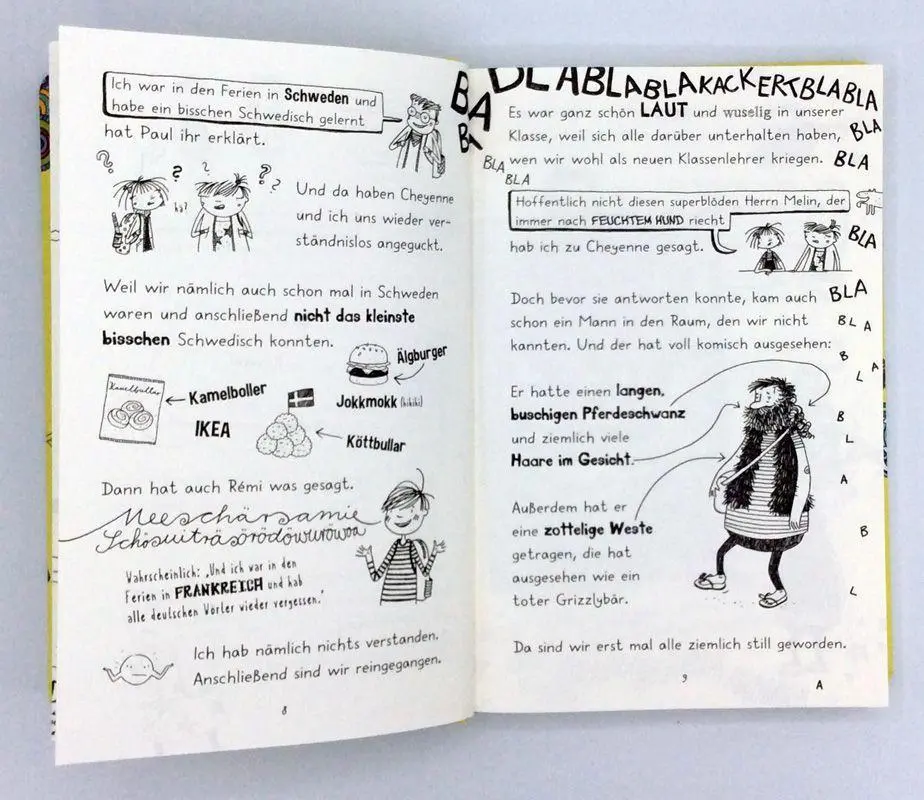 Ich war in den Ferien in Schweden und
habe ein bisschen Schwedisch gelernt
hat Paul ihr erklärt.
? ? ? ? ?
hä?
Und da haben Cheyenne
und ich uns wieder ver-
ständnislos angeguckt.
Weil wir nämlich auch schon mal in Schweden
waren und anschließend nicht das kleinste
bisschen Schwedisch konnten.
Älgburger
Kamelbullar
Kamelboller
Jokkmokk (hihihi)
IKEA
Köttbullar
Dann hat auch Rémi was gesagt.
Meeschärsamie
Schösuiträsörödöwurowoa
Wahrscheinlich: „Und ich war in den
Ferien in FRANKREICH und hab
alle deutschen Vörter wieder vergessen."
Ich hab nämlich nichts verstanden.
Anschließend sind wir reingegangen.
8
BLABLABLABLAKACKERTBLABLA
BA
BL
Es war ganz schön LAUT und wuselig in unserer
Klasse, weil sich alle darüber unterhalten haben, BLA
BLA wen wir wohl als neuen Klassenlehrer kriegen. BLA
BLA
Hoffentlich nicht diesen superblöden Herrn Melin, der
immer nach FEUCHTEM HUND riecht
BLA
hab ich zu Cheyenne gesagt.
Doch bevor sie antworten konnte, kam auch BLA
schon ein Mann in den Raum, den wir nicht BLA
kannten. Und der hat voll komisch ausgesehen:
B
L A
Er hatte einen langen,
buschigen Pferdeschwanz B
und ziemlich viele L
Haare im Gesicht.
A
Außerdem hat er
eine zottelige Weste B
getragen, die hat
ausgesehen wie ein
toter Grizzlybär. L
Da sind wir erst mal alle ziemlich still geworden.
9
A